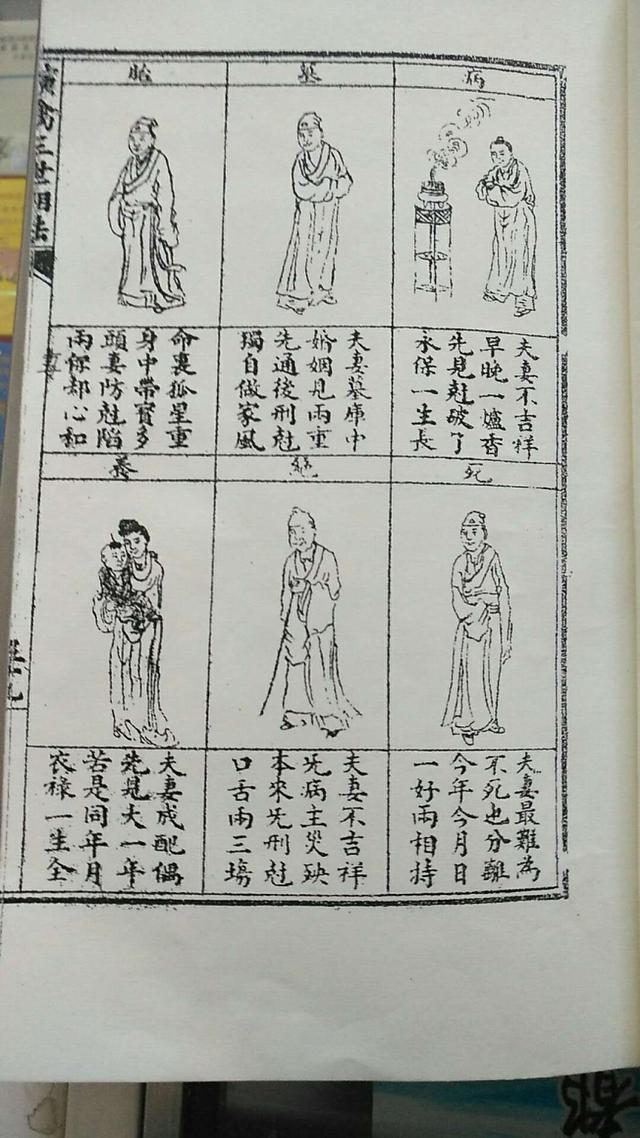 病
夫妻不吉祥
早晚一爐香
先見尅破了
永保一生長
死
夫妻最難為
不死也分離
今年今月日
一好兩相持
墓
夫妻墓庫中
婚姻見兩重
先通後刑尅
獨自做家風
絕
夫妻不吉祥
无病主災殃
本來无刑尅
口舌兩三塲
胎
命裏孤星重
身中帶寶多
頭妻防尅陷
兩保却心和
養
夫妻成配偶
先見夫一年
苦是同年月
衣祿一生全
演禽三世相法
都